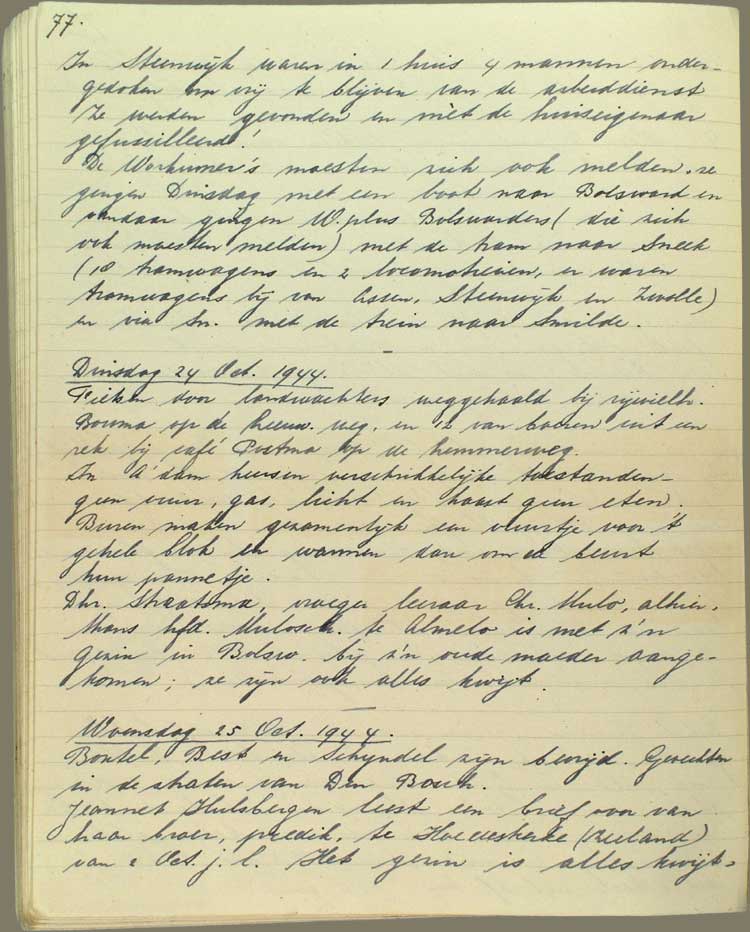 77.
In Steenwijk waren in 1 huis 4 mannen onder-
gedoken om vrij te blijven van de arbeiddienst
Ze werden gevonden en mèt de huiseigenaar
gefussilleerd!
De Workumer's moesten zich ook melden, ze
gingen Dinsdag met een boot naar Bolsward en
vandaar gingen W. plus Bolswarders (die zich
ook moesten melden) met de tram naar Sneek
(18 tramwagens en 2 locomotieven, er waren
tramwagens bij van Assen, Steenwijk en Zwolle)
en via Sn. met de trein naar Smilde.
Dinsdag 24 Oct. 1944.
Fietsen door landwachters weggehaald bij rijwielh.
Bouma op de Leeuw. weg, en 12 van boeren uit een
rek bij café Postma op de Lemmerweg.
In A'dam heersen verschrikkelijke toestanden-
geen vuur, gas, licht en haast geen eten.
Buren maken gezamenlijk een vuurtje voor 't
gehele blok en warmen dan om de beurt
hun pannetje.
Dhr. Straatsma, vroeger leeraar Chr. Mulo, alhier.
thans hfd. Mulosch. te Almelo is met z'n
gezin in Bolsw. bij z'n oude moeder aange-
komen; ze zijn ook alles kwijt.
Woensdag 25 Oct. 1944.
Boxtel, Best en Schijndel zijn bevrijd. Gevechten
in de straten van Den Bosch.
Jeannet Hulsbergen leest een brief voor van
haar broer, predik. te Hoedekenskerke (Zeeland)
van 2 Oct. j.l. Het gezin is alles kwijt-